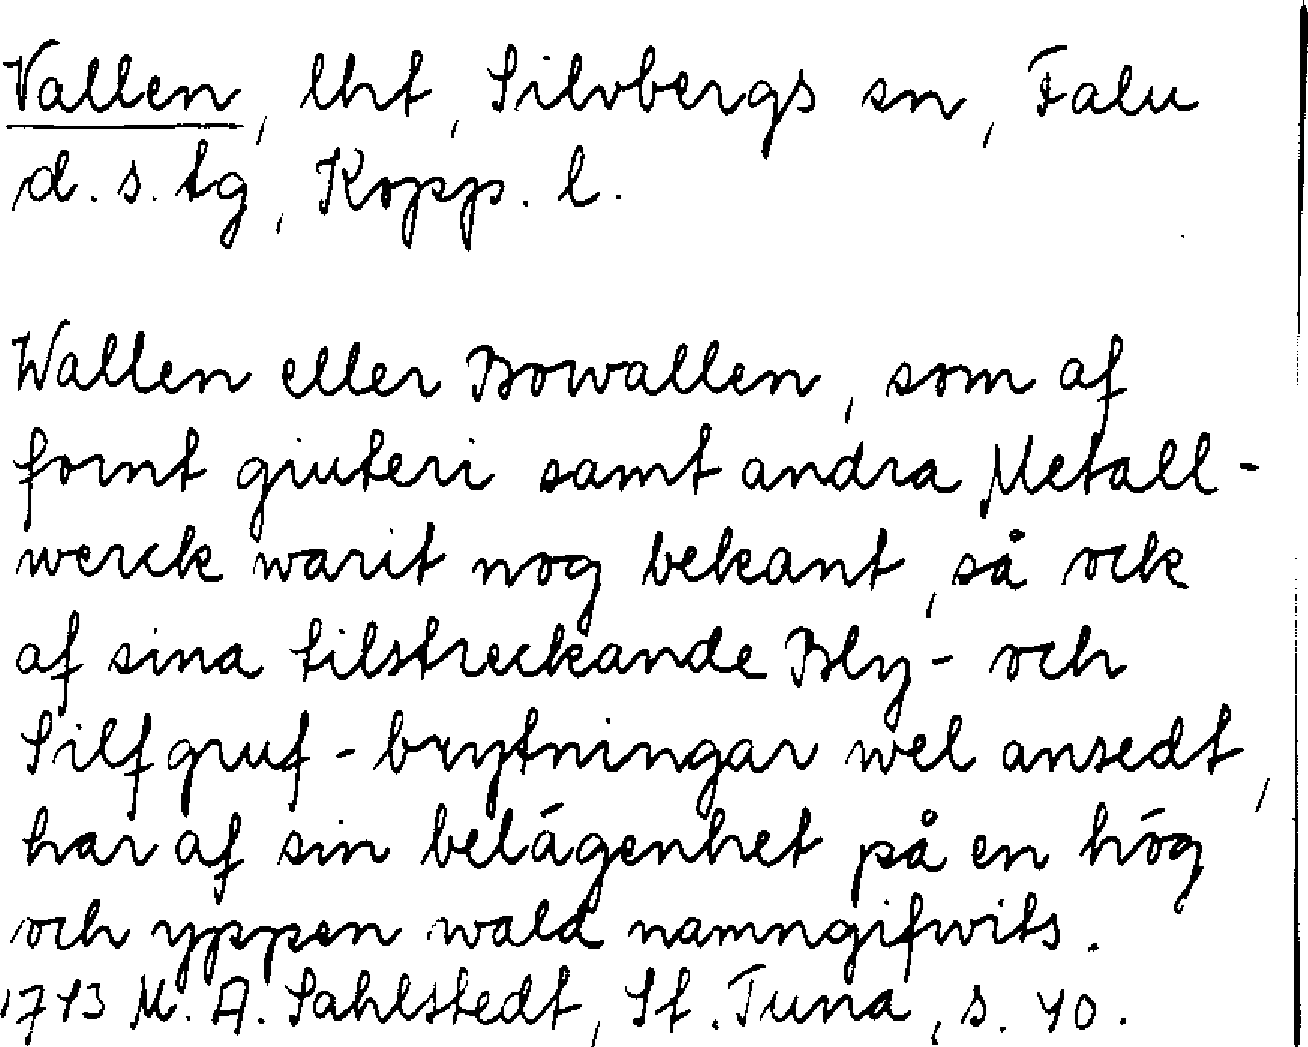 Vallen, lht, Silvbergs sn, Falu
d. s. tg, Kopp. l.
Wallen eller Bowallen, som af
fornt giuteri samt andra Metall-
werck warit nog bekant, så ock
af sina tilstreckande Bly- och
Silfgruf-brytningar wel ansedt,
har af sin belägenhet på en hög
och yppen wald namngifwits.
1743 M. A. Sahlstedt, St. Tuna, s. 40.